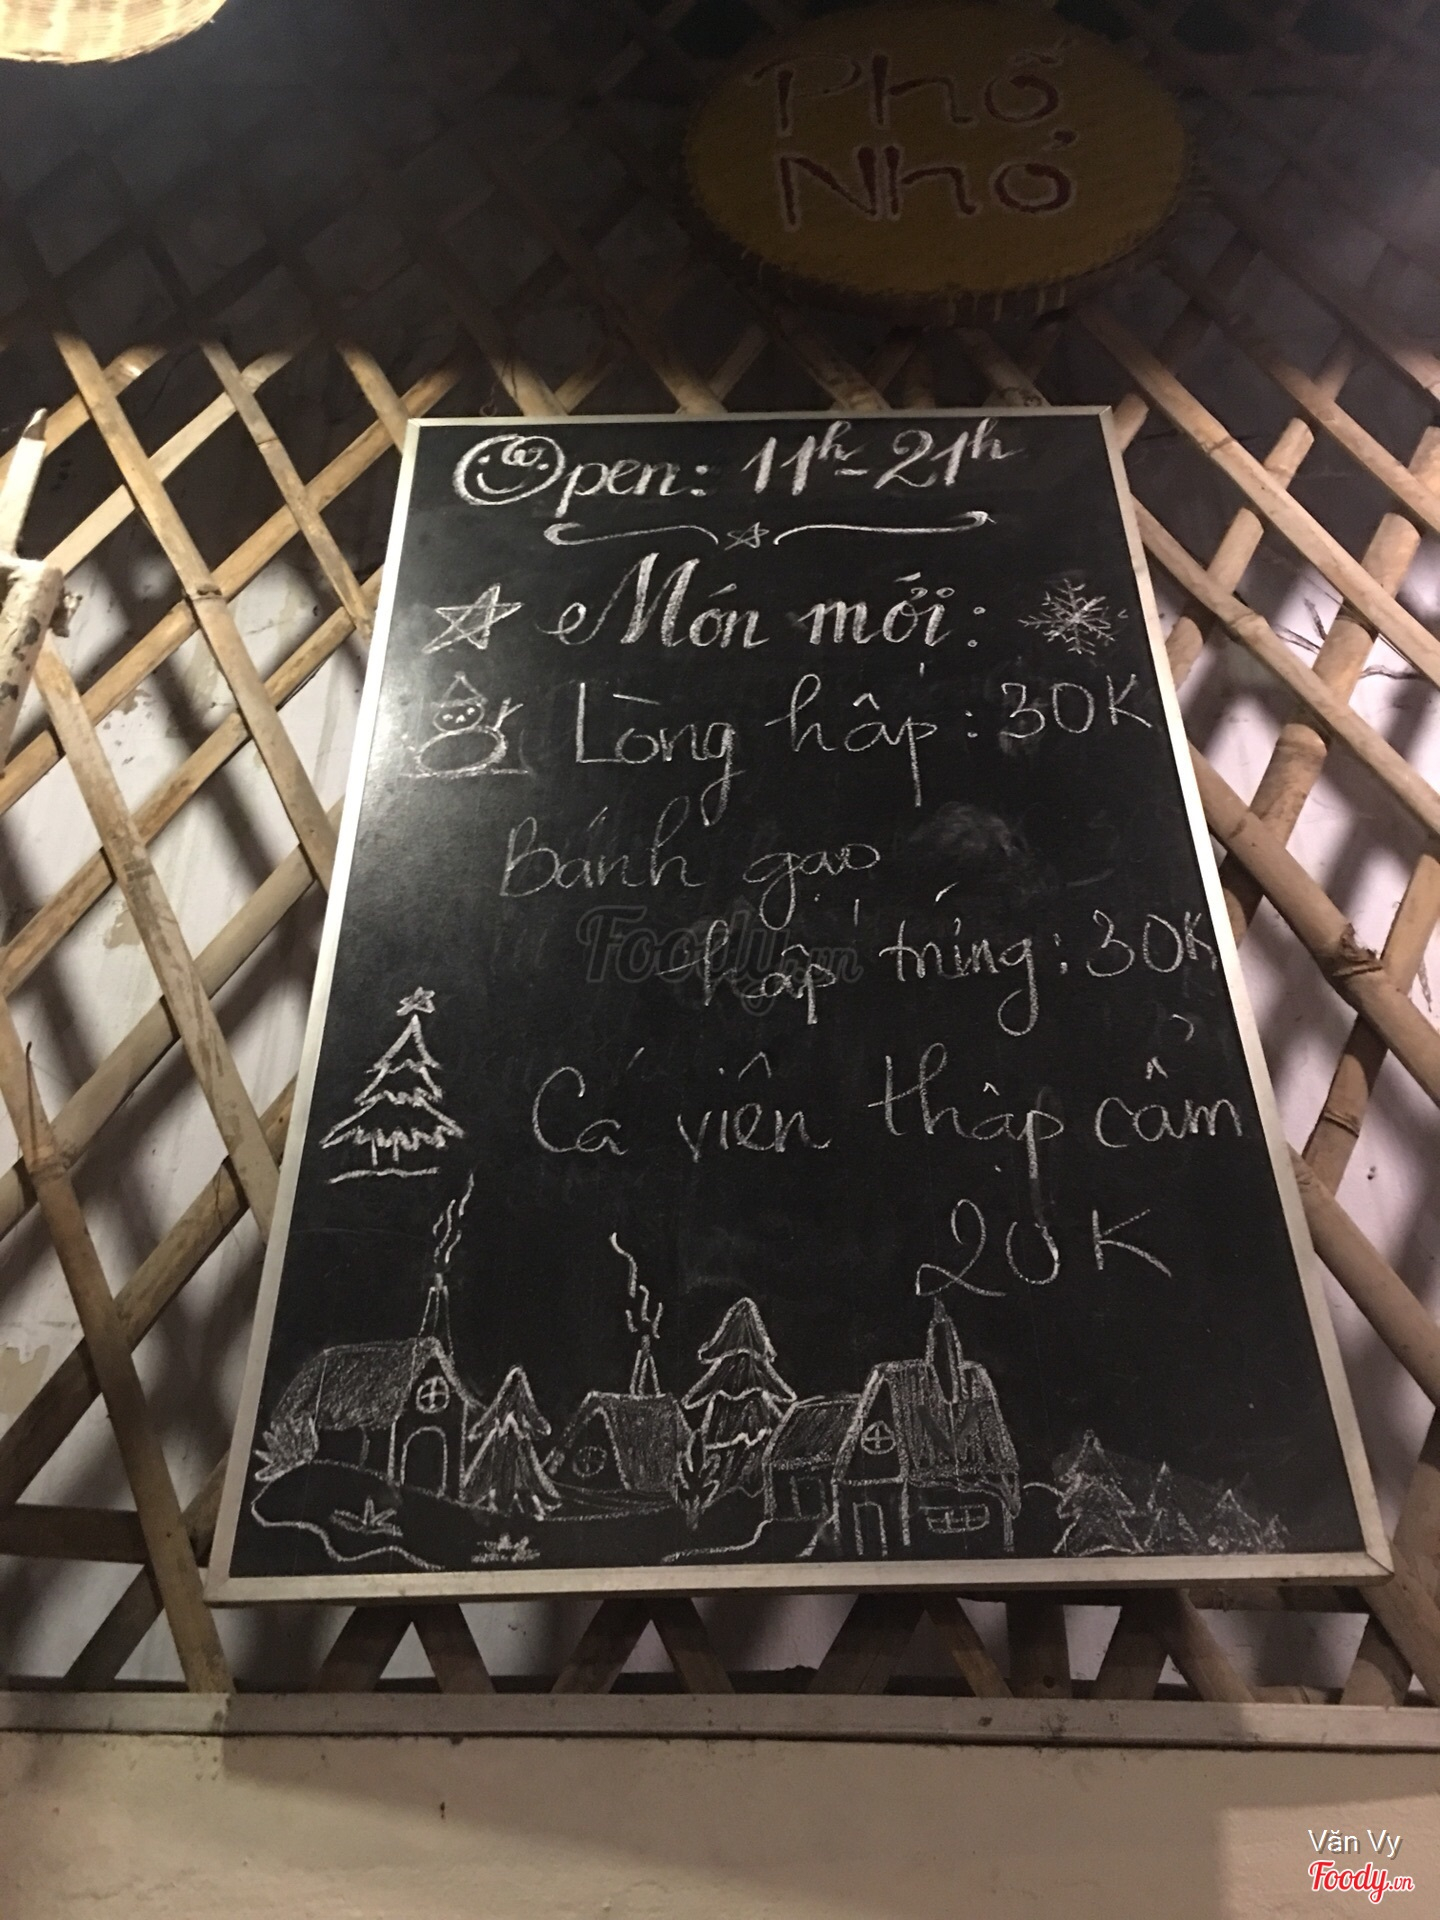 Phố
Nhỏ
Open: 11h-21h
Món mới:
Lòng hấp: 30K
Bánh gạo
hấp trứng: 30K
Cá viên thập cẩm
20K
Foody.vn
Văn Vy
Foody.vn